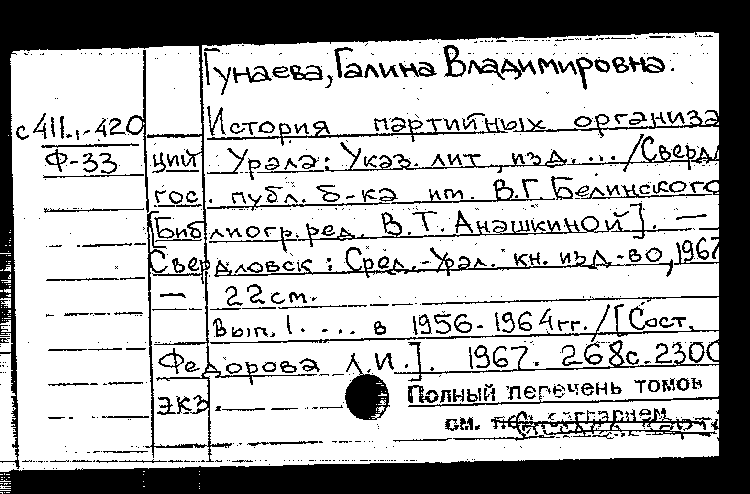 Гунаева, Галина Владимировна.
с 411.,-420 История партийных организа
Ф-33 ций Урала: Указ. лит, изд. ... /Сверд
гос. публ. б-ка им. В.Г. Белинского
[Библиогр. ред. В.Т. Анашкиной]. —
Свердловск: Сред.-Урал. кн. изд-во, 1967
— 22см.
Вып. 1. ... в 1956-1964гг. / [Сост.
Федорова Л.И.]. 1967. 268с. 2300
экз.
Полный перечень томов
см.